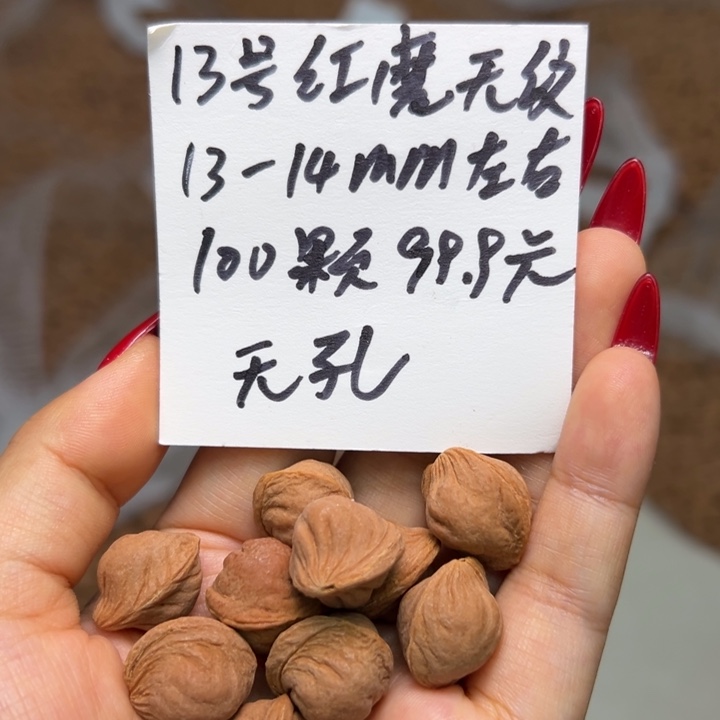 13号红魔无纹
13-14mm左右
100颗 99.9元
无孔